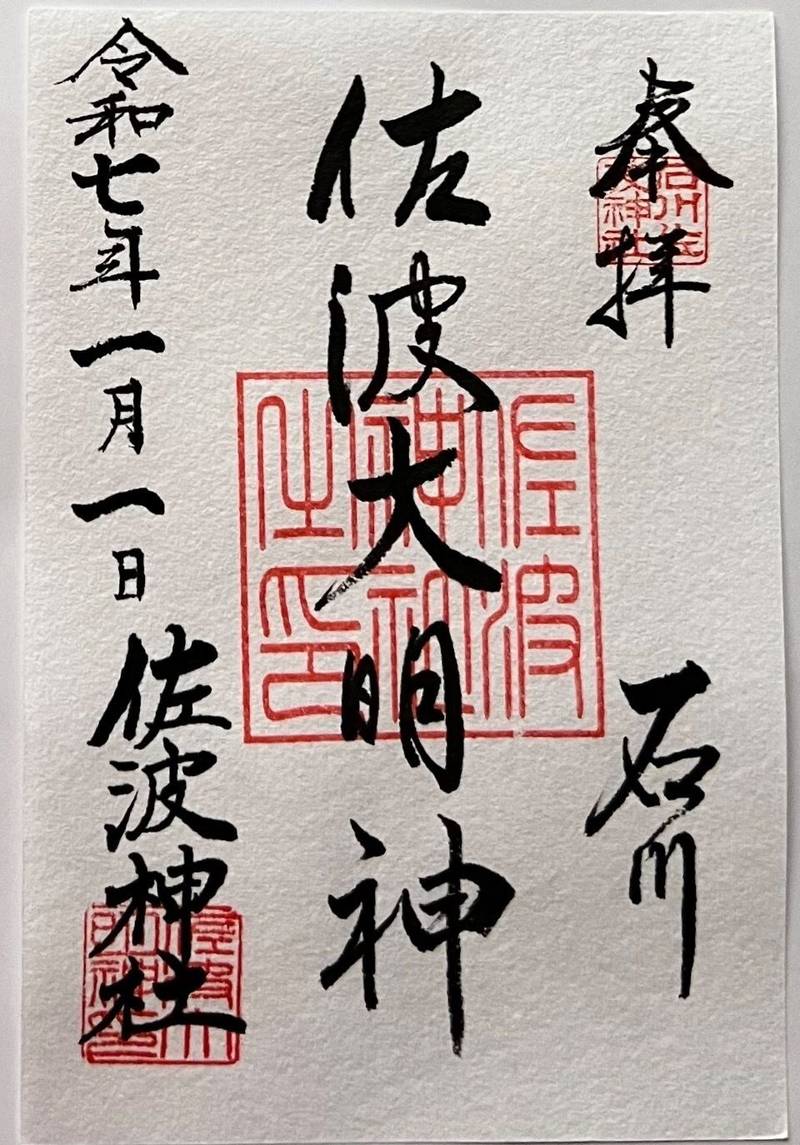 奉拝
石川
佐波大明神
令和七年一月一日
佐波神社
佐波
神社
之印